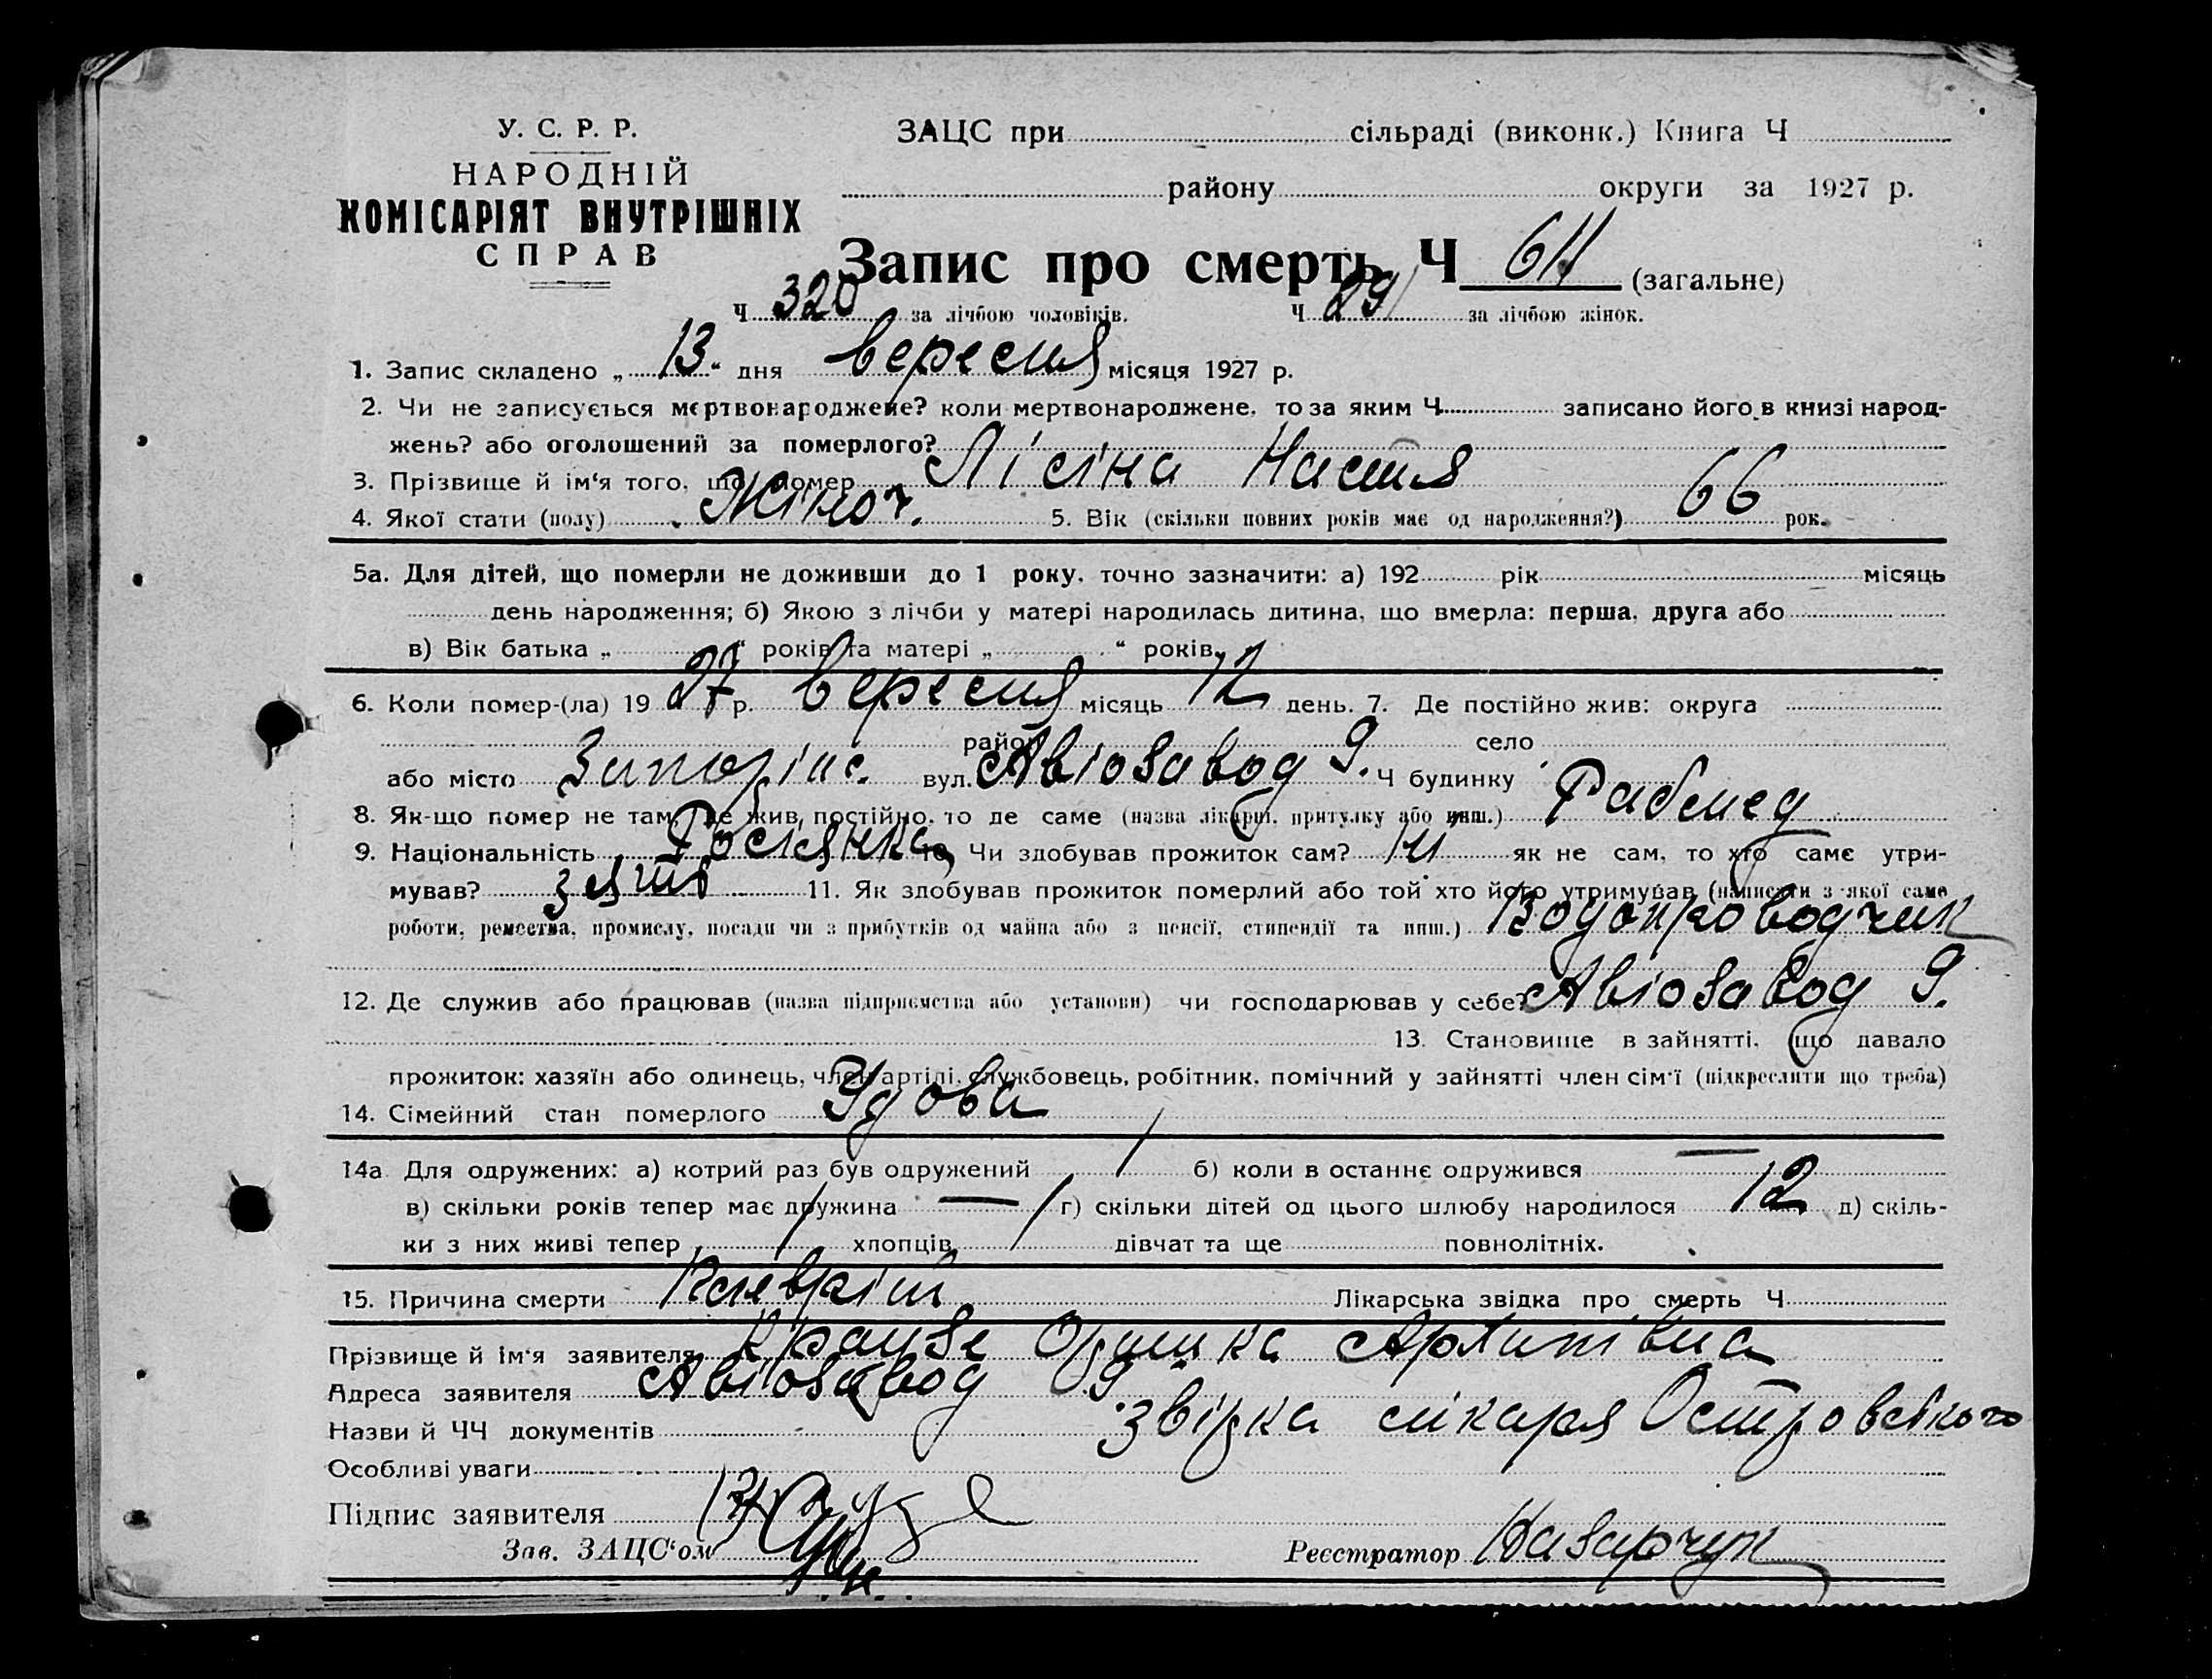 У. С. Р. Р.
НАРОДНІЙ
КОМІСАРІЯТ ВНУТРІШНІХ
СПРАВ
ЗАЦС при сільраді (виконк.) Книга Ч
району округи за 1927 р.
Запис про смерть Ч 611 (загальне)
Ч 320 за лічбою чоловіків. Ч 291 за лічбою жінок.
1. Запис складено „ 13 “ дня вересня місяця 1927 р.
2. Чи не записується мертвонароджене? коли мертвонароджене, то за яким Ч записано його в книзі народ-
жень? або оголошений за померлого?
3. Прізвище й ім‘я того, що помер Лісіна Настя
4. Якої стати (полу) Жіноч. 5. Вік (скільки повних років має од народження?) 66 рок.
5а. Для дітей, що померли не доживши до 1 року, точно зазначити: а) 192 рік місяць
день народження; б) Якою з лічби у матері народилась дитина, що вмерла: перша, друга або
в) Вік батька „ “ років та матері „ “ років.
6. Коли помер-(ла) 19 27 р. вересня місяць 12 день. 7. Де постійно жив: округа
район село
або місто Запоріж. вул. Авіозавод 9. Ч будинку
8. Як-що помер не там, де жив постійно, то де саме (назва лікарні, притулку або инш.) Рабмед
9. Національність Росіянка 10. Чи здобував прожиток сам? ні як не сам, то хто саме утри-
мував? зять 11. Як здобував прожиток померлий або той хто його утримував (написати з якої саме
роботи, ремества, промислу, посади чи з прибутків од майна або з пенсії, стипендії та инш.) Водопроводчик
12. Де служив або працював (назва підприємства або установи) чи господарював у себе? Авіозавод 9.
13. Становище в зайнятті, що давало
прожиток: хазяїн або одинець, член артілі, службовець, робітник, помічний у зайнятті член сім‘ї (підкреслити що треба)
14. Сімейний стан померлого Удова
14а Для одружених: а) котрий раз був одружений 1 б) коли в останнє одружився —
в) скільки років тепер має дружина — г) скільки дітей од цього шлюбу народилося 12 д) скіль-
ки з них живі тепер 1 хлопців 1 дівчат та ще повнолітніх.
15. Причина смерти Плевріт Лікарська звідка про смерть Ч
Прізвище й ім‘я заявителя Краузе Оришка Архипівна
Адреса заявителя Авіозавод 9
Назви й ЧЧ документів звірка лікаря Островського
Особливі уваги
Підпис заявителя
Зав. ЗАЦС‘ом Реєстратор Назарчук